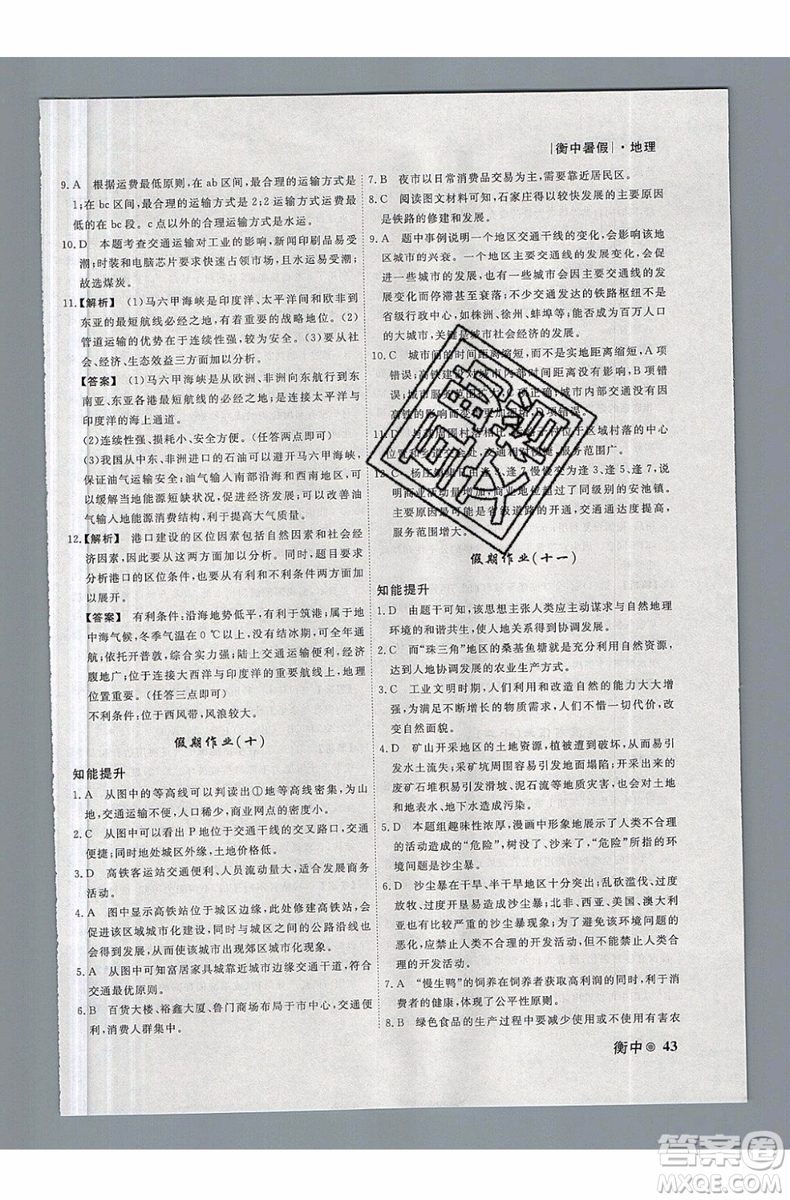 |衡中暑假|·地理
9.A 根据运费最低原则,在ab区间,最合理的运输方式是
1;在bc区间,最合理的运输方式是2;2运输方式运费最
低的在bc段。c点以外的合理运输方式是水运。
10.D 本题考查交通运输对工业的影响,新闻印刷品易受
潮;时装和电脑芯片要求快速占领市场,且易受潮;
故选煤炭。
11.【解析】 (1)马六甲海峡是印度洋、太平洋间和欧非到
东亚的最短航线必经之地,有着重要的战略地位。(2)
管道运输的优势在于连续性强、损耗少、安全。(3)要从
社会、经济、生态效益三方面加以分析。
【答案】 (1)马六甲海峡是从欧洲、非洲向东航行到东
南亚、东亚各港最短航线的必经之地;是连接太平洋与
印度洋的海上通道。
(2)连续性强、损耗小、安全方便。(任答两点即可)
(3)我国从中东、非洲进口的石油可以绕开马六甲海峡,
保证油气运输安全;油气输入南部沿海和西南地区,可
以缓解当地能源短缺状况,促进经济发展;可以改善油
气输入地能源消费结构,利于提高大气质量。
12.【解析】 港口建设的区位因素包括自然因素和社会经
济因素,应从这两方面加以分析。同时,题目要求从有
利条件和不利条件分析港口的区位条件,应从两方面加
以展开。
【答案】 有利条件:沿海地势低平,有利于筑港;属于地
中海气候,冬季气温在0 ℃以上,没有结冰期,可长年通
航;依托开普敦,综合实力强;陆上交通便利,经济
腹地广;位于连接大西洋与印度洋的海上要道,地理
位置重要。(任答三点即可)
不利条件:位于西风带,风浪较大。
假期作业(十)
知能提升
1.A 从图中的等高线可以判读出①地等高线密集,为山
地,交通运输不便,人口稀少,商业网点的密度小。
2.C 从图中可以看出P地位于交通干线的交叉路口,交通
便捷;同时地处城区外缘,土地价格低。
3.D 高铁客运站交通便利、人员流动量大,适合发展商务
活动。
4.A 图中显示高铁站位于城区边缘,此处修建高铁站,会
促进该区域城市化建设,同时与城区之间的公路沿线也
会实现城市化,所以该城市出现郊区城市化现象。
5.A 从图中可知富居家具城靠近城市边缘交通干道,符合
交通最优原则。
6.B 百货大楼、裕鑫大厦、鲁门商场布局于市中心,交通便
利,消费人群集中。
7.B 夜市以日常消费品交易为主,因此应接近居民区。
8.C 阅读图文材料可知,石家庄得以较快发展的主要原因
是铁路的修建和发展。
9.A 题中事例说明一个地区交通干线的变化,会影响该地
区城市的兴衰。一个地区主要交通干线的变化,会促
进一些城市的发展,有些城市会因主要交通干线的变化
发展变化而停滞甚至衰落;不少交通发达的铁路枢纽不是
省级行政中心,如株洲、徐州、蚌埠等,能否成为百万人口
的大城市,关键是城市社会经济的发展。
10.C 城市间的时间距离缩短,而不是实地距离缩短,A项
错误;高铁建设对城市内部时间距离没有影响,B项
错误;城市内部交通没有因
高铁的影响而变得更加拥挤,D项错误。
11.D 与其周围村落相比,
位置和乡道交会处,通达度高,服务范围广。
12.C 杨庄镇由逢3、逢7慢慢变为逢3、逢5、逢7,说
明商业活动量增加,商业地位超过了同级别的安池镇。
发展的最可能原因是省级道路的开通,交通通达度提高,
服务范围增大。
假期作业(十一)
知能提升
1.D 由题干可知,该思想主张人类应主动谋求与自然地理
环境的和谐共生,使人地关系得到协调发展。
2.C 而“珠三角”地区的桑基鱼塘就是充分利用自然资源,
达到人地协调发展的农业生产方式。
3.C 工业文明时期,人们利用和改造自然的能力大大增
强,为满足不断增长的物质需求,人们不惜一切代价,改
变自然面貌。
4.D 矿山开采地区的土地资源,植被遭到破坏,从而易引
发水土流失;采矿坑周围易引发地面塌陷等地质灾害;
废矿石堆积易引发滑坡、泥石流等地质灾害,可能会对土
地、地表水、地下水造成污染。
5.D 本题组趣味性浓厚,漫画中形象地展示了人类不合理
的活动造成的“危险”,即沙尘暴来了,“危险”所指的环
境问题是沙尘暴。
6.D 沙尘暴在干旱、半干旱地区十分突出;乱砍滥伐、过度
放牧、过度开垦易造成沙尘暴;中亚、北非、美国、澳大利
亚也有比较严重的沙尘暴现象;为了避免该环境问题的
出现,应禁止人类不合理的开发活动,但不能禁止人类合
理的开发活动。
7.A “慢生鸭”的饲养在饲养者获取高利润的同时,利于消
费者的健康,体现了公平性原则。
8.B 绿色食品的生产过程中要尽可能减少或不施用有害农
衡中 43
答案圈
MXQE.COM